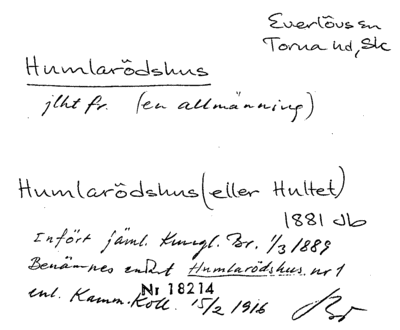 Everlövs sn
Torna hd, Sk
Humlarödshus
jlht fr. (en allmänning)
Humlarödshus (eller Hultet)
1881 db
Infört jäml. Kungl. Br. 1/3 1889
Benämnes enkelt Humlarödshus nr 1
enl. Kamm. Koll. 15/2 1916
Nr 18214